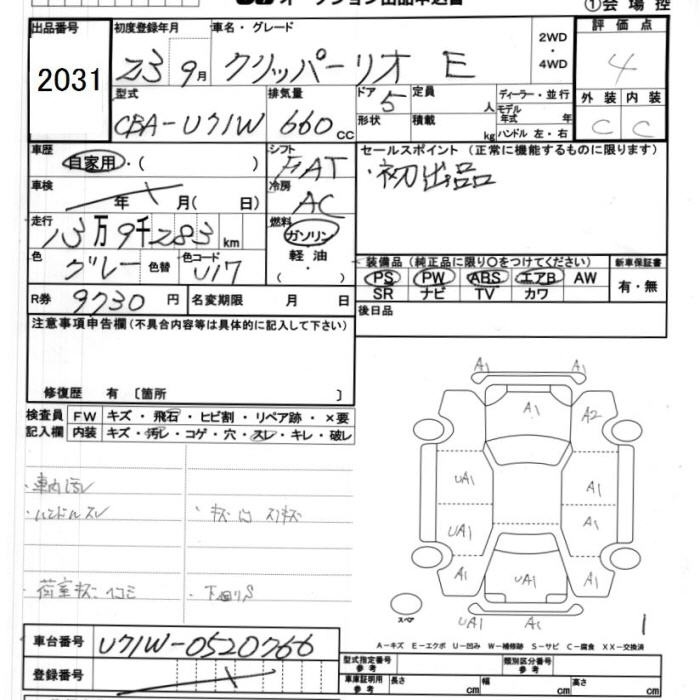 オークション出品申込書
①会場控
出品番号 2031
初度登録年月 23 9月
車名・グレード クリッパーリオ E
2WD・4WD
評価点 4
外装 内装
C C
型式 CBA-U71W
排気量 660 cc
ドア 5
形状
定員 人
積載 kg
ディーラー・並行
モデル年式 年
ハンドル 左・右
車歴 自家用・( )
シフト FAT
セールスポイント (正常に機能するものに限ります)
・初出品
車検 年 月( 日)
冷房 AC
走行 13万9千283 km
燃料 ガソリン
軽油
( ・ )
色 グレー 色替 色コード U17
装備品 (純正品に限り○をつけてください)
新車保証書
PS PW ABS エアB AW
SR ナビ TV カワ
有・無
R券 9730 円 名変期限 月 日
後日品
注意事項申告欄(不具合内容等は具体的に記入して下さい)
修復歴 有 〔箇所 〕
検査員記入欄
FW キズ・飛石・ヒビ割・リペア跡・×要
内装 キズ・汚レ・コゲ・穴・スレ・キレ・破レ
・車内汚レ
・ハンドルスレ
・荷室キズ ヘコミ
・下回りS
A1 A1
A1 A2
UA1 A1
UA1 A1
A1 UA1 A1
スペア
UA1 A1
1
A-キズ E-エクボ U-凹み W-補修跡 S-サビ C-腐食 XX-交換済
車台番号 U71W-0520766
登録番号
型式指定番号 参考
類別区分番号 参考
車庫証明用 参考 長さ cm 幅 cm 高さ cm